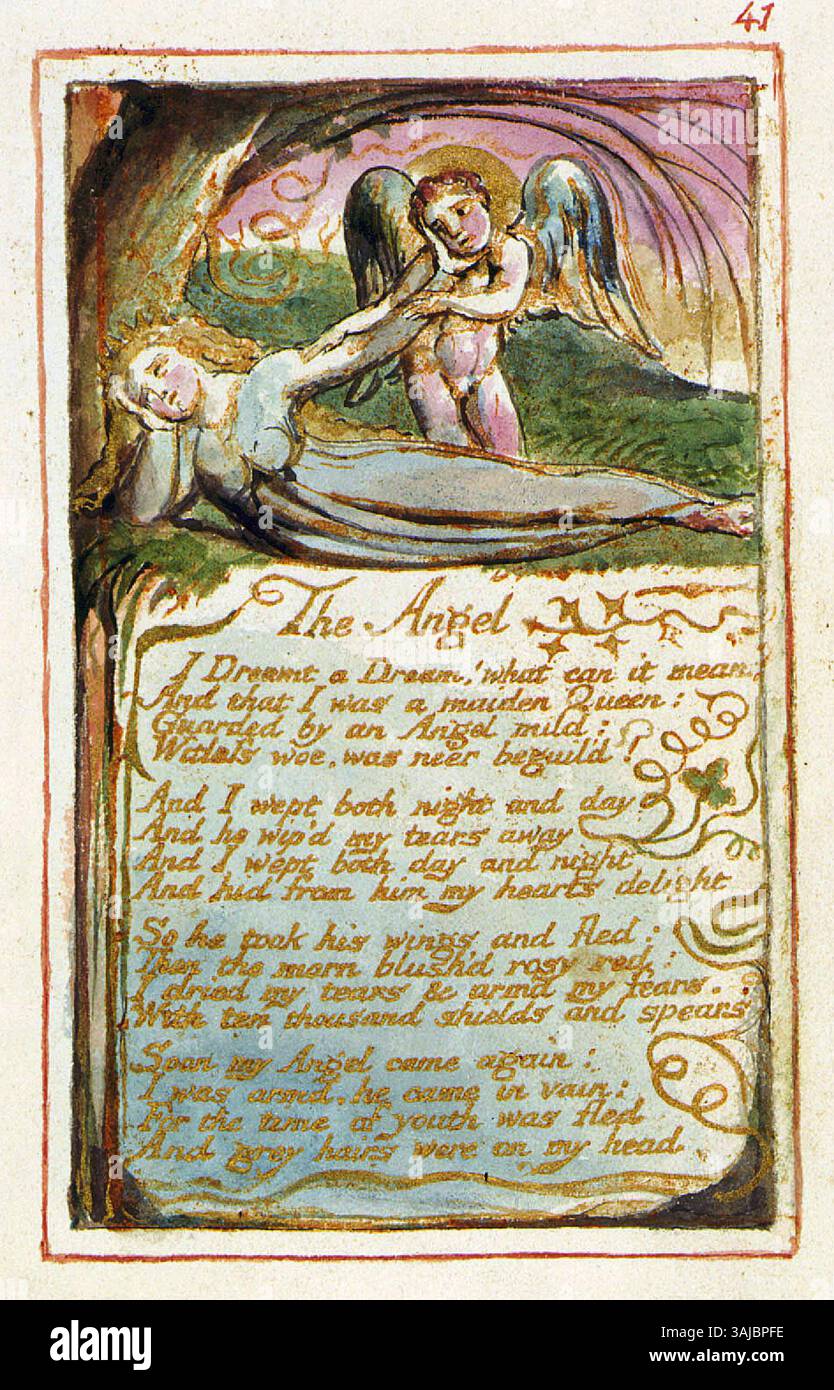 41
The Angel
I Dreamt a Dream! what can it mean?
And that I was a maiden Queen:
Guarded by an Angel mild:
Witless woe, was neer beguil'd!
And I wept both night and day
And he wip'd my tears away
And I wept both day and night
And hid from him my hearts delight
So he took his wings and fled:
Then the morn blush'd rosy red:
I dried my tears & armd my fears.
With ten thousand shields and spears
Soon my Angel came again:
I was arm'd, he came in vain:
For the time of youth was fled
And grey hairs were on my head.
alamy
Image ID: 3AJBPFE
www.alamy.com